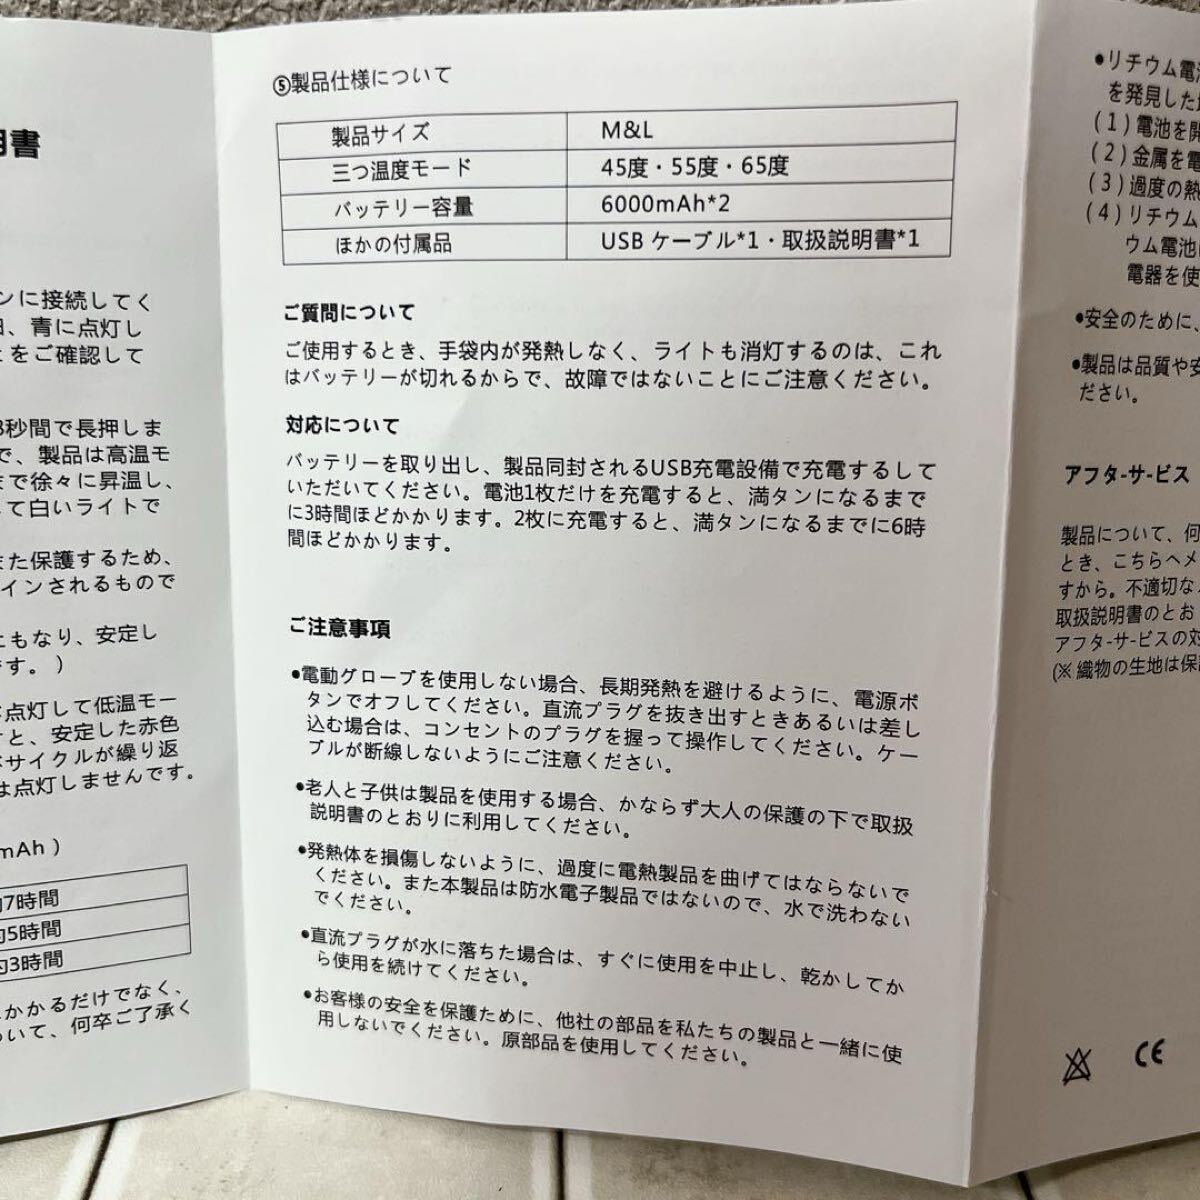 明書
ンに接続してく
日、青に点灯し
とをご確認して
3秒間で長押しま
で、製品は高温モ
まで徐々に昇温し、
して白いライトで
また保護するため、
インされるもので
にもなり、安定し
です。)
は点灯して低温モー
すと、安定した赤色
がサイクルが繰り返
は点灯しませんです。
mAh)
約7時間
約5時間
約3時間
かかるだけでなく、
いて、何卒ご了承く
⑤製品仕様について
製品サイズ M&L
三つ温度モード 45度・55度・65度
バッテリー容量 6000mAh*2
ほかの付属品 USB ケーブル*1・取扱説明書*1
ご質問について
ご使用するとき、手袋内が発熱しなく、ライトも消灯するのは、これ
はバッテリーが切れるからで、故障ではないことにご注意ください。
対応について
バッテリーを取り出し、製品同封されるUSB充電設備で充電するして
いただいてください。電池1枚だけを充電すると、満タンになるまで
に3時間ほどかかります。2枚に充電すると、満タンになるまでに6時
間ほどかかります。
ご注意事項
•電動グローブを使用しない場合、長期発熱を避けるように、電源ボ
タンでオフしてください。直流プラグを抜き出すときあるいは差し
込む場合は、コンセントのプラグを握って操作してください。ケー
ブルが断線しないようにご注意ください。
•老人と子供は製品を使用する場合、かならず大人の保護の下で取扱
説明書のとおりに利用してください。
•発熱体を損傷しないように、過度に電熱製品を曲げてはならないで
ください。また本製品は防水電子製品ではないので、水で洗わない
でください。
•直流プラグが水に落ちた場合は、すぐに使用を中止し、乾かしてか
ら使用を続けてください。
•お客様の安全を保護ために、他社の部品を私たちの製品と一緒に使
用しないでください。原部品を使用してください。
•リチウム電池
を発見した
(1)電池を開
(2)金属を電
(3)過度の熱
(4)リチウム
ウム電池
電器を使
•安全のために、
•製品は品質や安
ださい。
アフタ-サ-ビス
製品について、何
とき、こちらへメ
すから。不適切な
取扱説明書のとお
アフタ-サ-ビスの対
(※織物の生地は保
CE